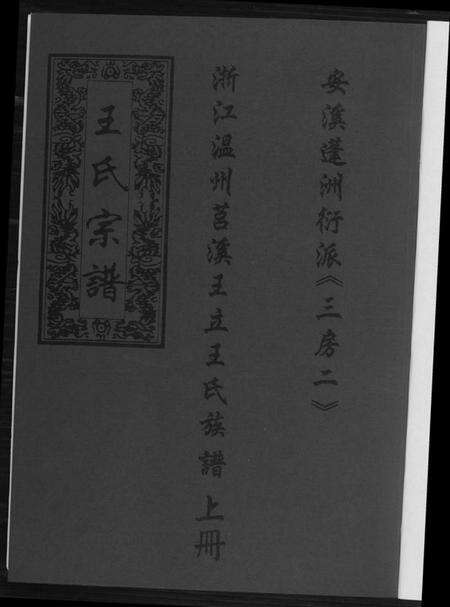 安溪蓬洲衍派《三房二》
浙江温州莒溪王立王氏族譜上冊
王氏宗譜